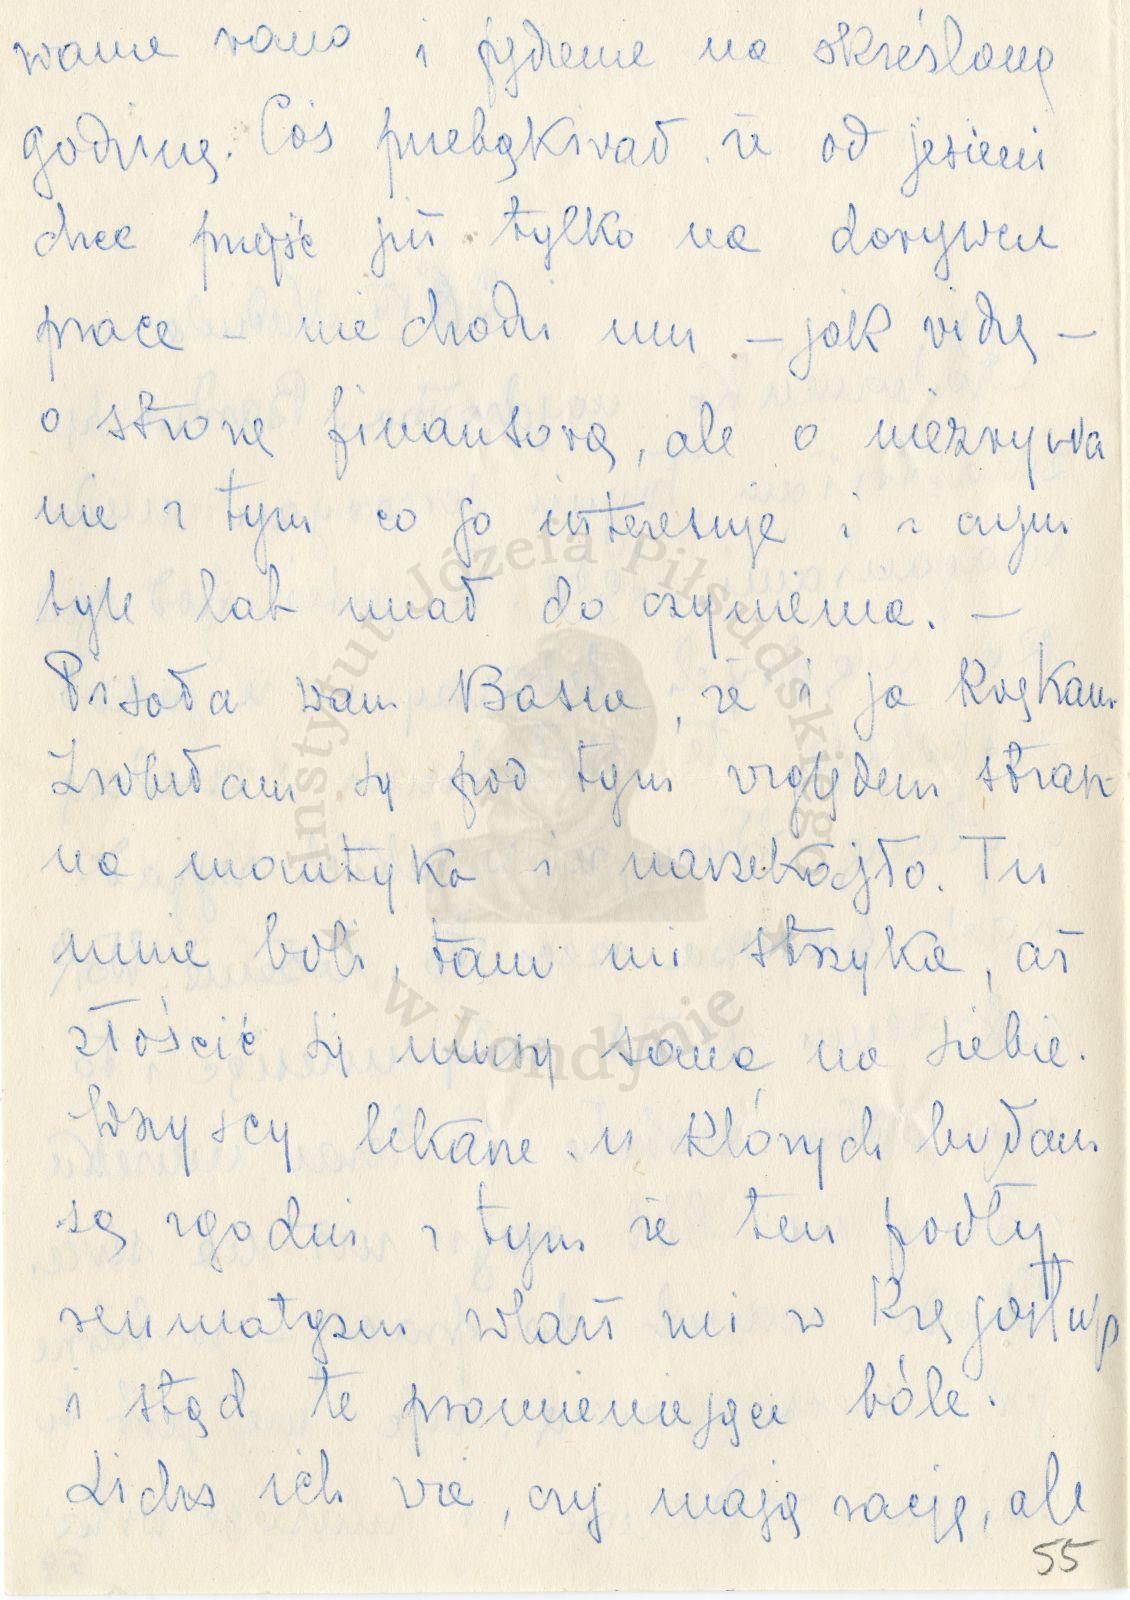 wanie rano i jeżdżenie na określoną
godzinę. Coś przebąkiwał, że od jesieni
chce przejść już tylko na dorywczą
pracę – nie chodzi mu – jak widzę –
o stronę finansową, ale o niezrywa
nie z tym co go interesuje i z czym
tyle lat miał do czynienia. –
Pisała wam Basia, że i ja kwękam.
Zrobiłam się pod tym względem strasz-
na mantyka i narzekajło. Tu
mnie boli, tam mi strzyka, aż
złościć się muszę sama na siebie.
Wszyscy lekarze u których byłam
są zgodni z tym że ten podły
reumatyzm wlazł mi w kręgosłup
i stąd te promieniujące bóle.
Licho ich wie, czy mają rację, ale
55
Instytut Józefa Piłsudskiego
w Londynie